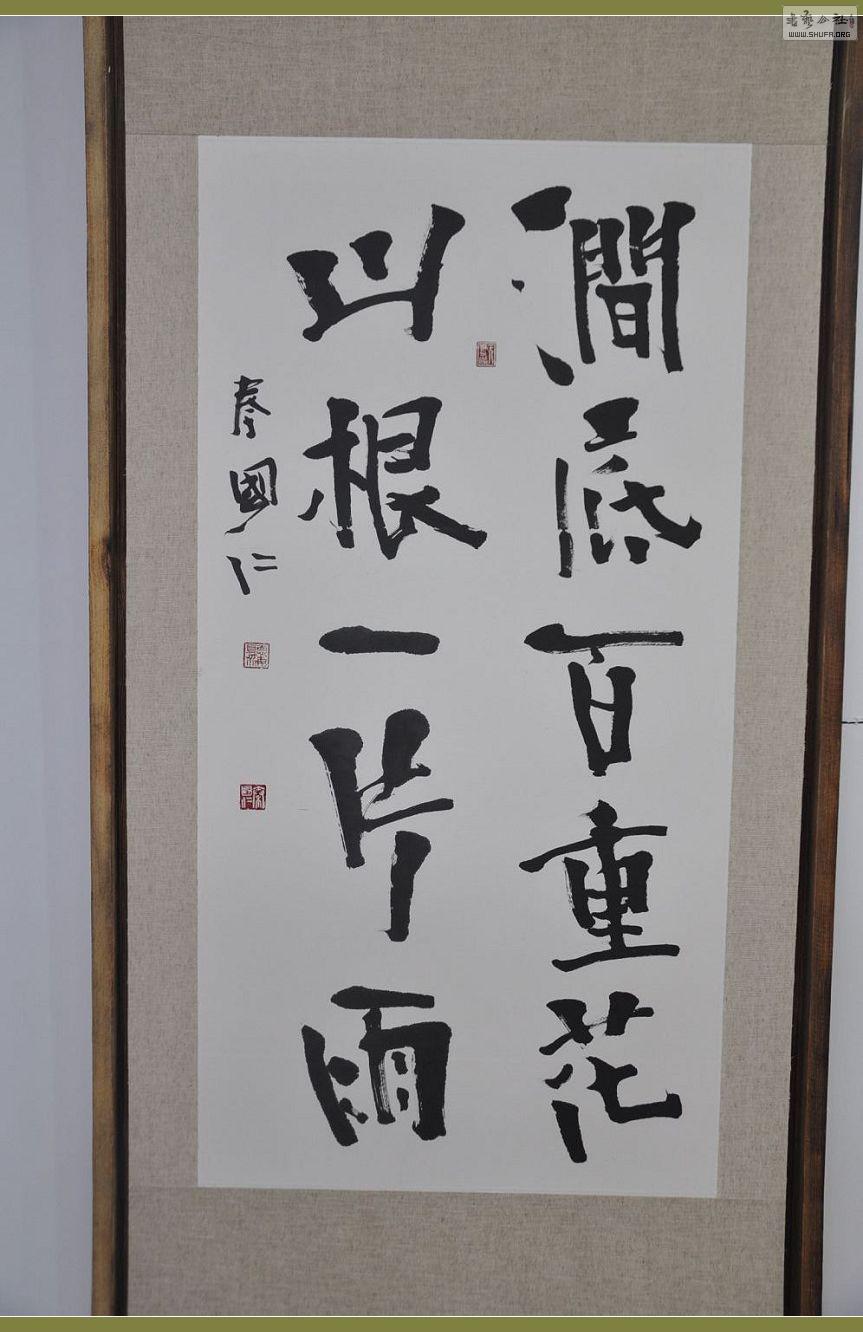 澗底百重花
山根一片雨
秦國仁
書藝公社
WWW.SHUFA.ORG